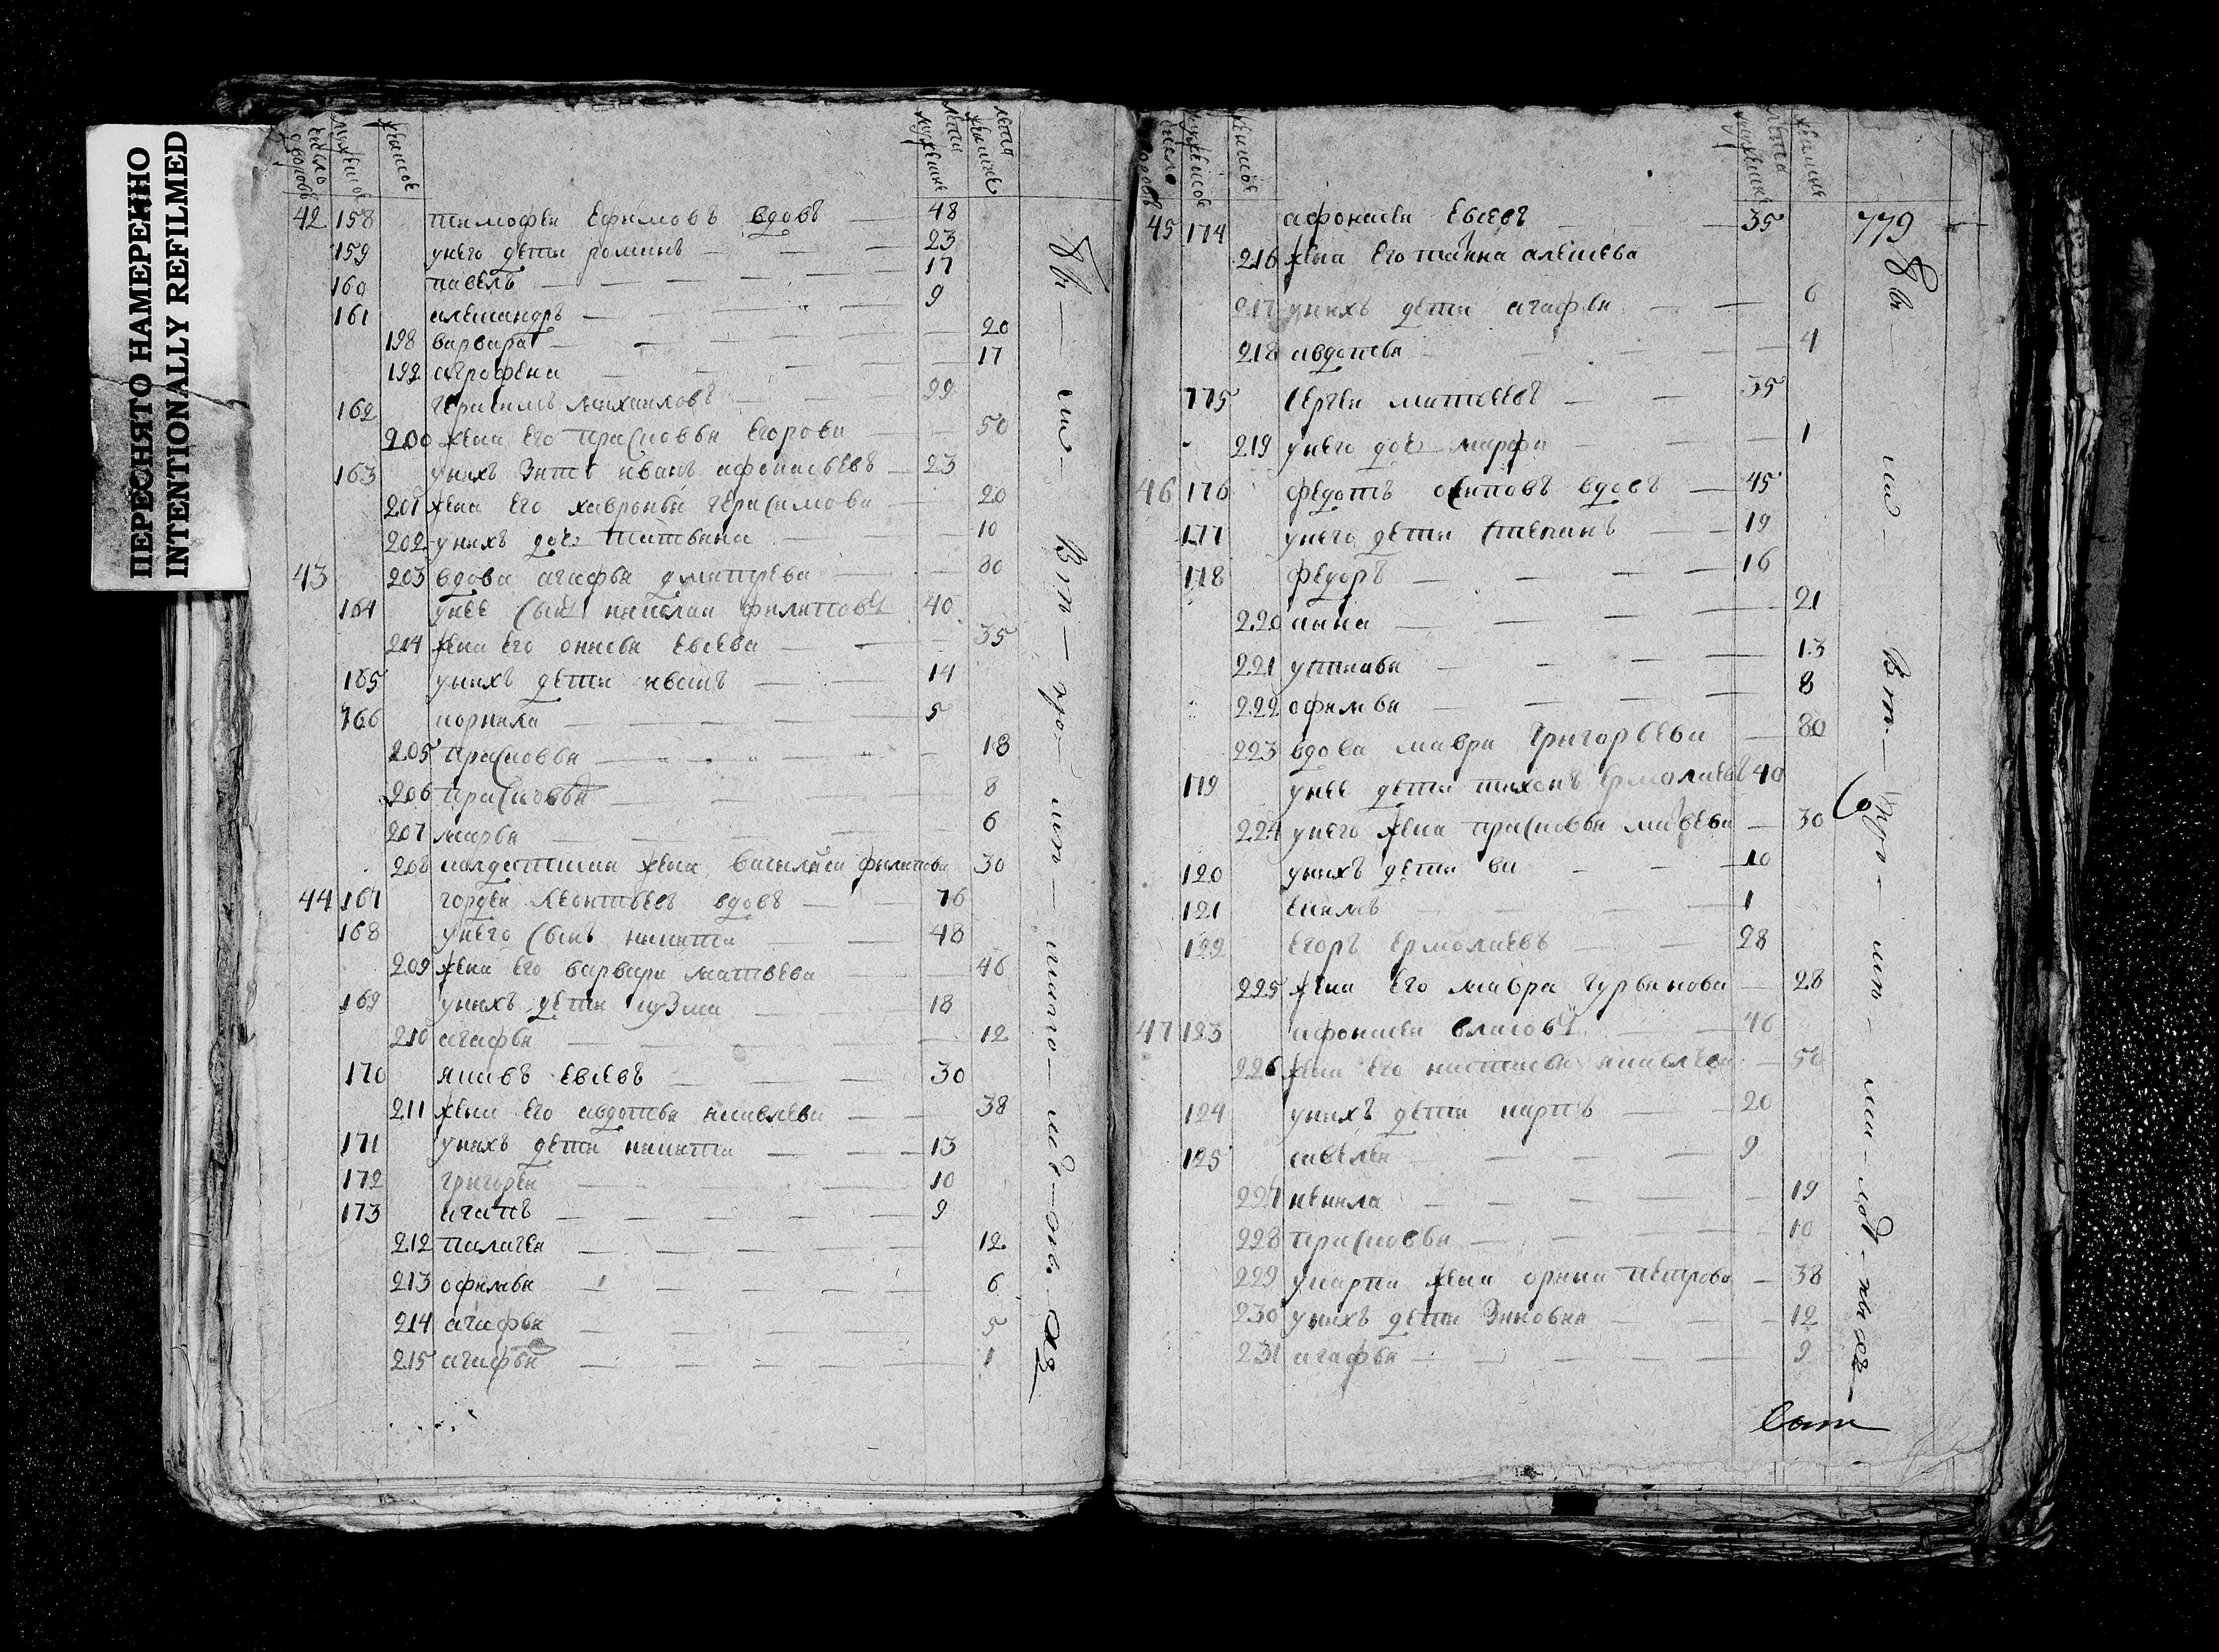 ПЕРЕСНЯТО НАМЕРЕННО
INTENTIONALLY REFILMED
число дворовъ мужеска женска лета мужеска лета женска
42 158 тимофеи ефимовъ вдовъ 48
159 унего дети романъ 23
160 павелъ 17
161 алеѯандръ 9
198 варвара 20
199 аграфена 17
162 герасимъ михаиловъ
200 жена его прасковья егорова 50
163 унихъ зять иванъ афонасьевъ 23
201 жена его хавронья герасимова 20
202 унихъ дочь татьяна 10
43 203 вдова агафья дмитрева 80
164 унее сынъ филиповъ 40
204 жена его евсева 35
165 унихъ дети иванъ 14
166 корнила 5
205 прасковья 18
206 прасковья 8
207 марья 6
208 салдатская жена василиса филипова 30
44 167 гордеи леонтьевъ вдовъ 76
168 унего сынъ никита 48
209 жена его варвара матвеева 46
169 унихъ дети кузма 18
210 агафья 12
170 яковъ евсевъ 30
211 жена его авдотья яковлева 38
171 унихъ дети никита 13
172 григореи 10
173 агапъ 9
212 палагея 12
213 офимья 6
214 агафья 5
215 агафья 1
число дворовъ мужеска женска лета мужеска женска
45 174 афонасеи евсевъ 35
779
216 жена его татьяна алексева
217 унихъ дети агафья 6
218 авдотья 4
175 сергеи матвеевъ 35
219 унего дочь марфа 1
46 176 федотъ осиповъ вдовъ 45
177 унего дети степанъ 19
178 федоръ 16
220 анна 21
221 устинья 13
222 офимья 8
223 вдова мавра григорьева 80
179 унее дети тихонъ ермолаевъ 40
224 унего жена прасковья 30
120 унихъ дети 10
121 екимъ 1
122 егоръ ермолаевъ 28
225 жена его мавра гурьянова 28
47 123 афонасеи власовъ 46
226 жена его настасья яковлева 50
124 унихъ дети карпъ 20
125 савелеи 9
227 ненила 19
228 прасковья 10
229 укарпа жена орина петрова 38
230 унихъ дети зиновья 12
231 агафья 9